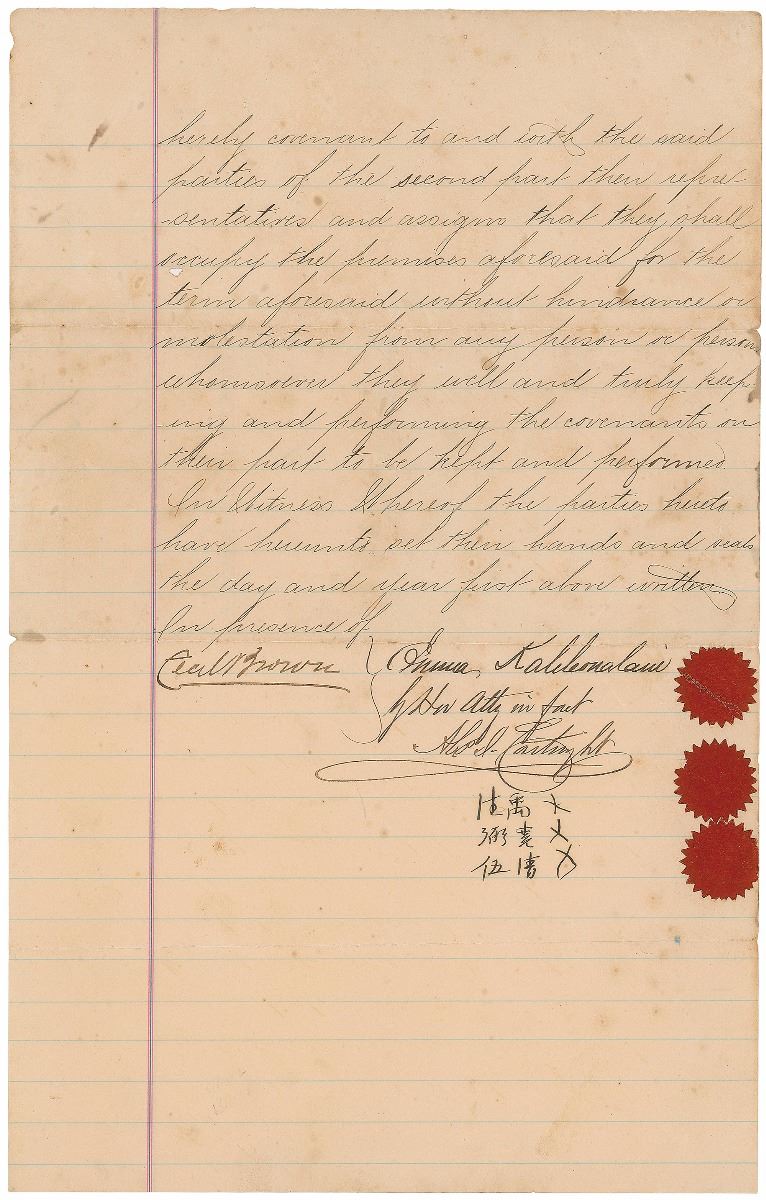 hereby covenant to and with the said
parties of the second part their repre-
-sentatives and assigns that they shall
occupy the premises aforesaid for the
term aforesaid without hindrance or
molestation from any person or persons
whomsoever they well and truly keep-
ing and performing the covenants on
their part to be kept and performed
In Witness Whereof the parties hereto
have hereunto set their hands and seals
the day and year first above written
In presence of
Cecil Brown
Emma Kaleleonalani
By Her Atty in fact
Alex J. Cartwright
禹 X
X
伍 X